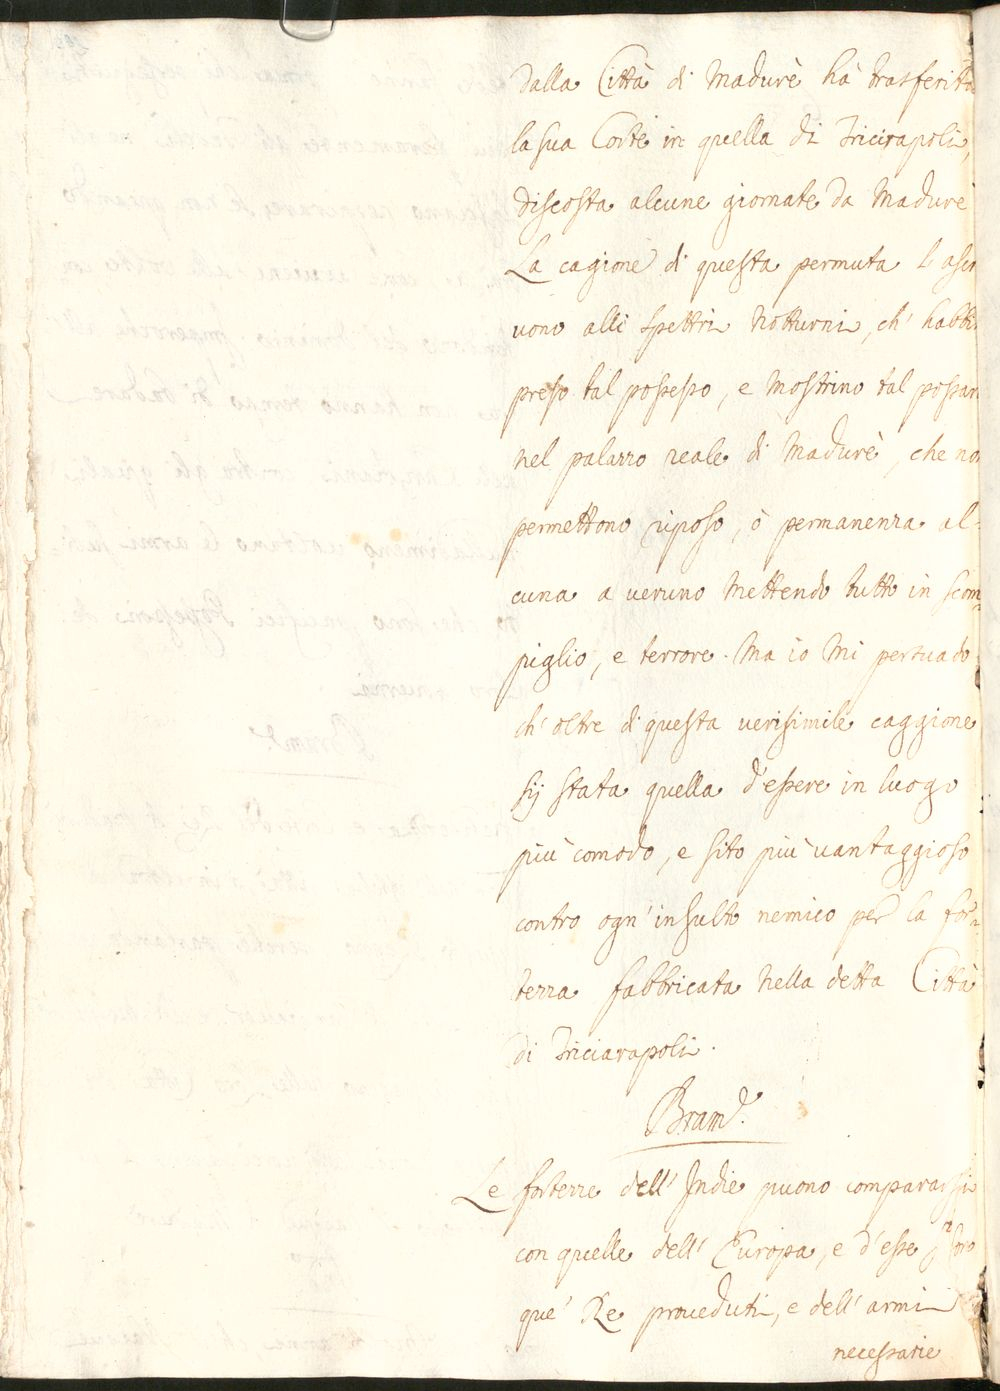 dalla Città di Madurè hà trasferita
la sua Corte in quella di Tricirapoli,
discosta alcune giornate da Madurè
La cagione di questa permuta l'ascri
vono alli spettri notturni, ch' habbi
preso tal possesso, e mostrino tal possan
nel palazzo reale di Madurè, che no
permettono riposo, ò permanenza al-
cuna a veruno mettendo tutto in scom-
piglio, e terrore. Ma io mi persuado
ch' oltre di questa verisimile caggione
sij stata quella d'essere in luogo
più comodo, e sito più vantaggioso
contro ogn' insulto nemico per la for-
tezza fabbricata nella detta Città
di Triciarapoli.
Bram.
Le fortezze dell' Indie puono compararsi
con quelle dell' Europa, e d'esse sono
que' Re proveduti, e dell' armi
necessarie